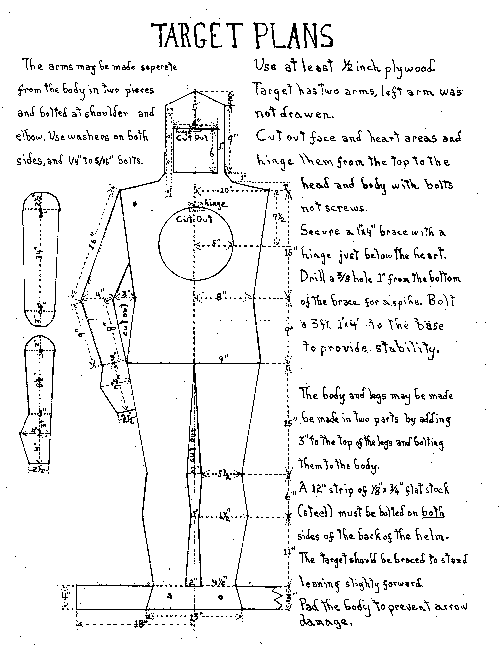 TARGET PLANS
The arms may be made seperete
from the body in two pieces
and bolted at shoulder and
elbow. Use washers on both
sides, and 1/4" to 5/16" bolts.
Use at least 1/2 inch plywood
Target has two arms, left arm was
not drawen.
Cut out face and heart areas and
hinge them from the top to the
head and body with bolts
not screws.
Secure a 1"x4" brace with a
hinge just below the heart.
Drill a 3/8 hole 1" from the bottom
of the brace for a spike. Bolt
a 3ft. 1"x4" to the base
to provide stability.
The body and legs may be made
be made in two parts by adding
3" to the top of the legs and bolting
them to the body.
A 12" strip of 1/8"x 3/4" flat stock
(steel) must be bolted on both
sides of the back of the helm.
The target should be braced to stand
leaning slightly forward.
Pad the body to prevent arrow
damage.
Cut Out
9"
20"
hinge
Cut Out
7 1/2
6"
16"
8"
9"
9"
18"
13"